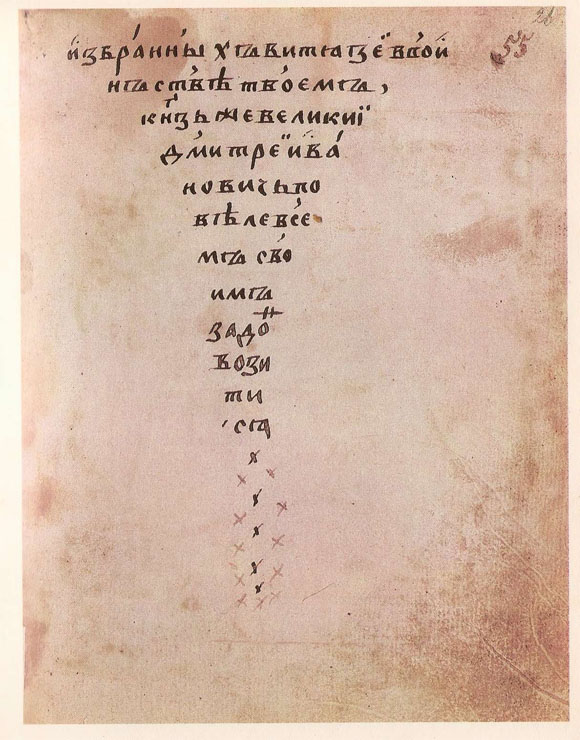 избра́нны хъ витѧзе́ въ вой
нъствѣ твоемъ,
кн҃зь же великиї
дмитреи ива́
новичь по
вѣле все
мъ сво
имъ
за до
вози
ти
сѧ